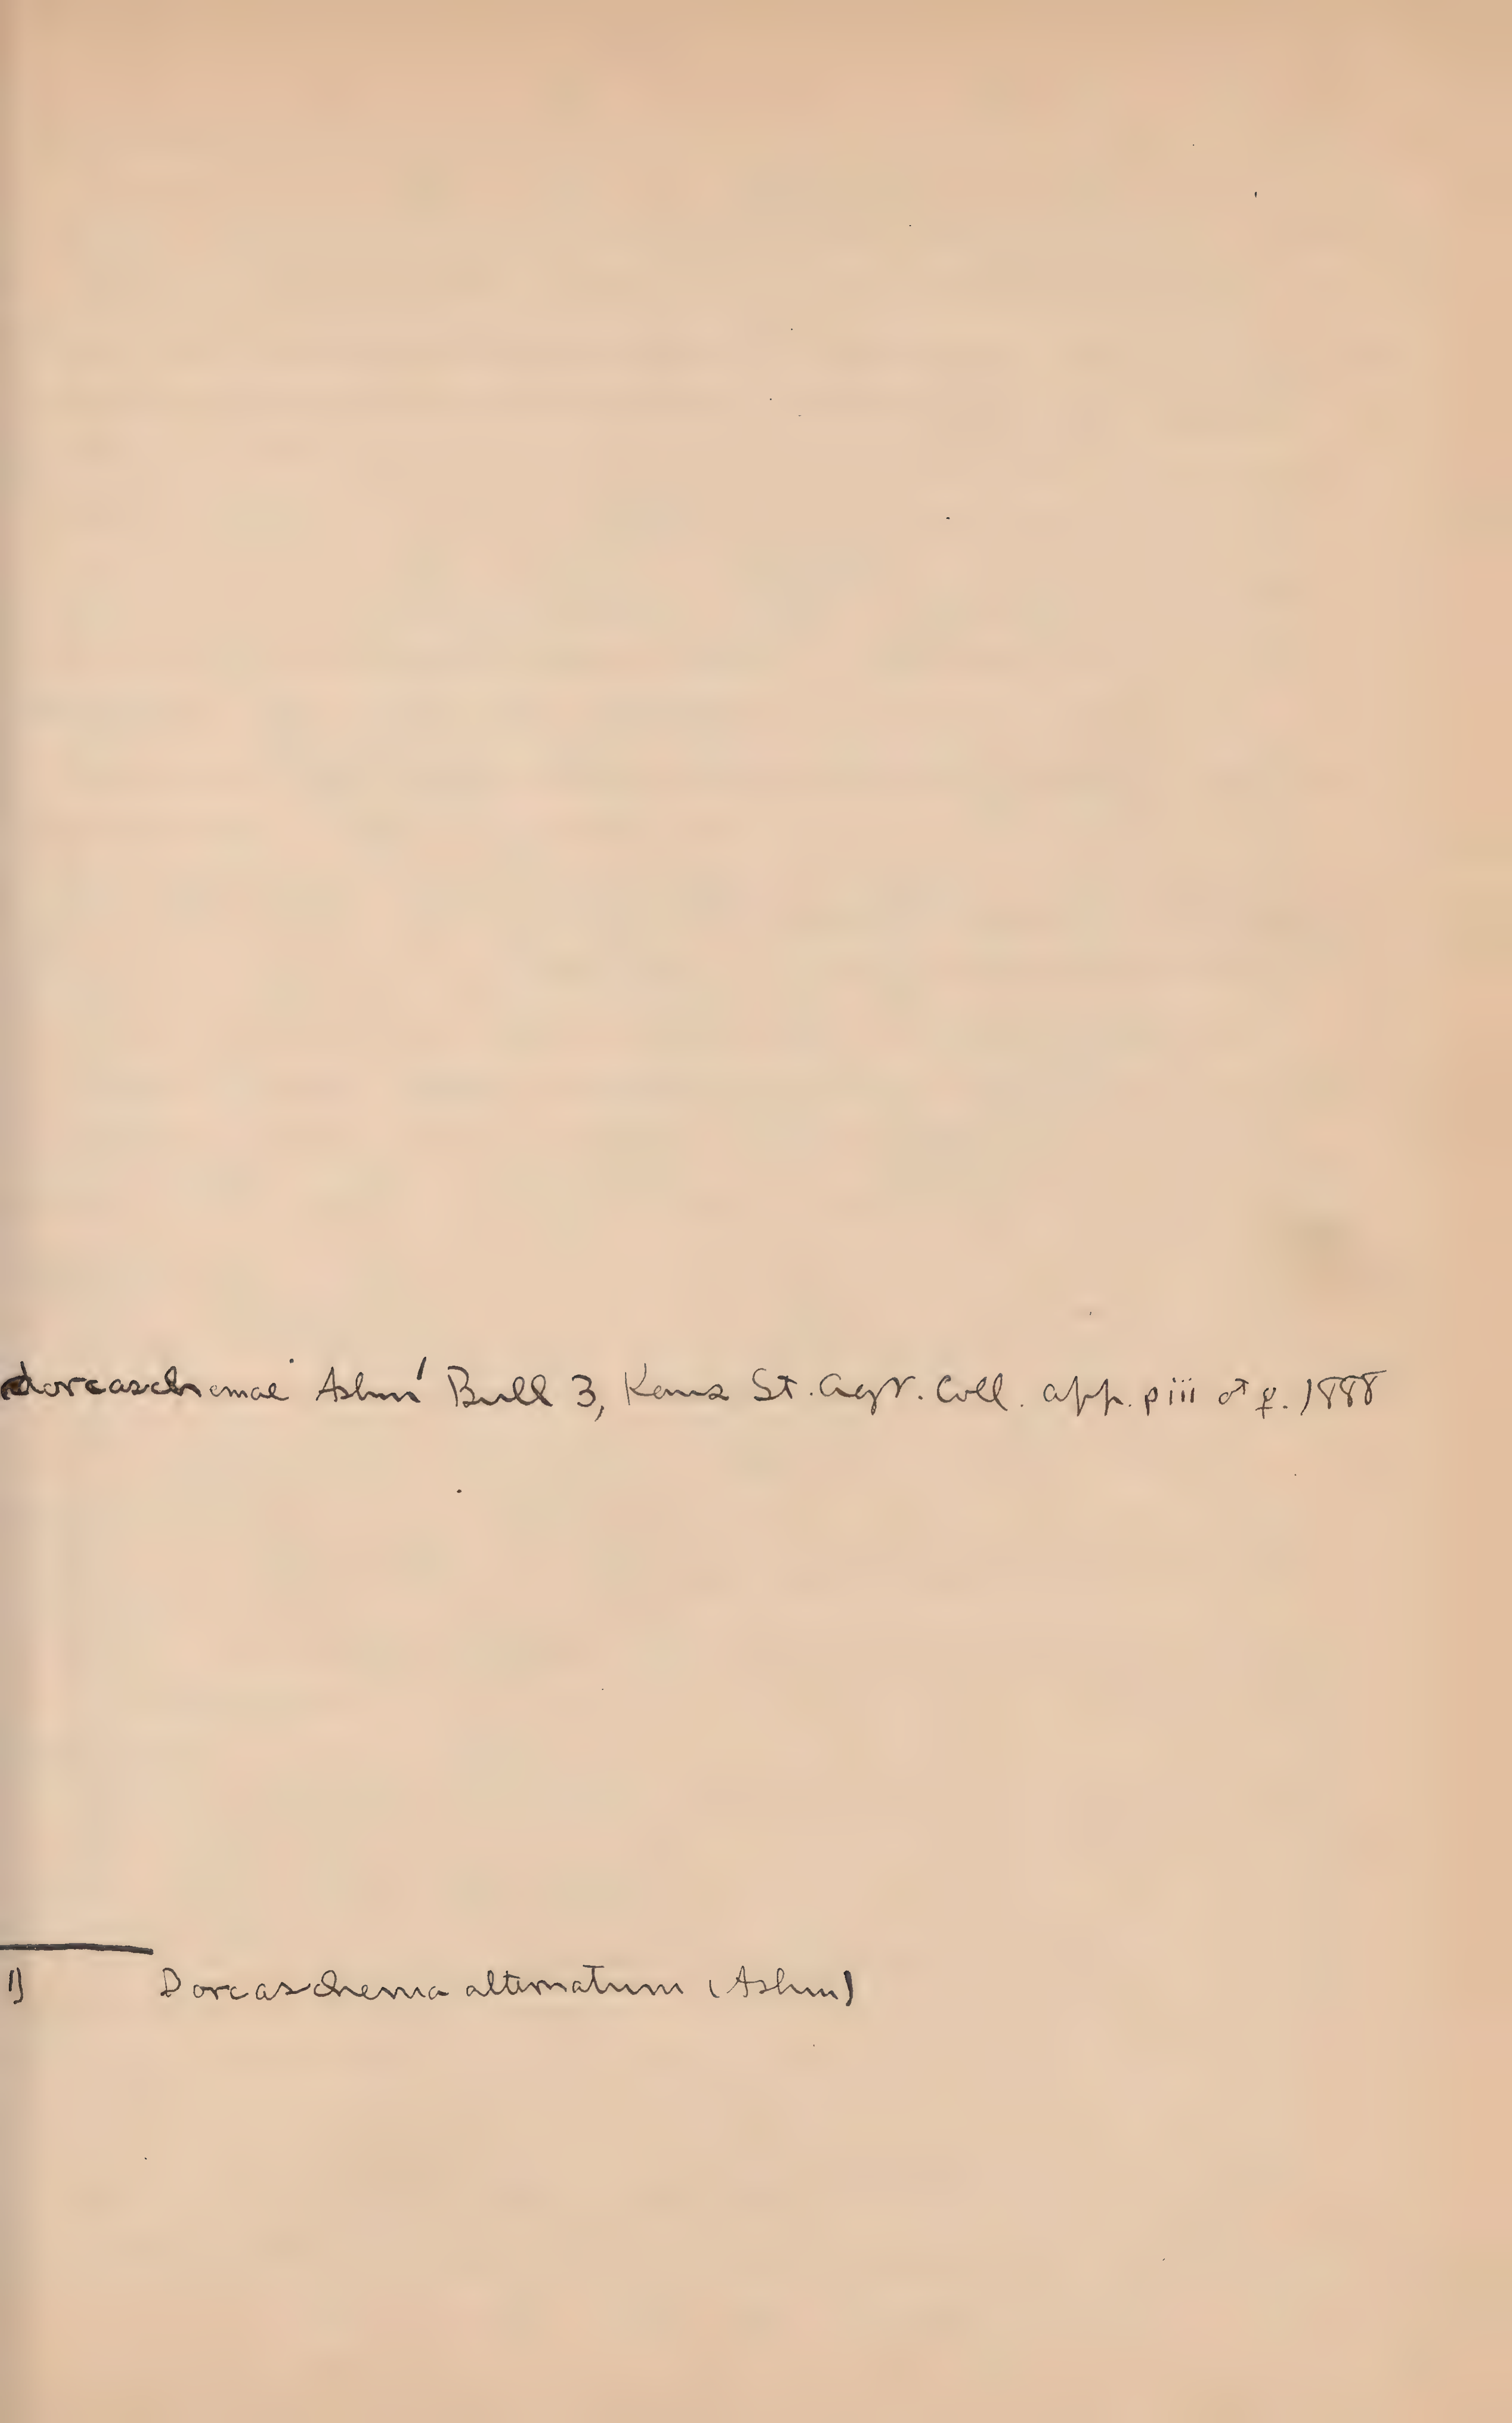 dorcaschemae Ashm' Bull 3, Kans St. Agr. Coll. app. p iii ♂ ♀. 1888
1) Dorcaschema alternatum (Ashm)